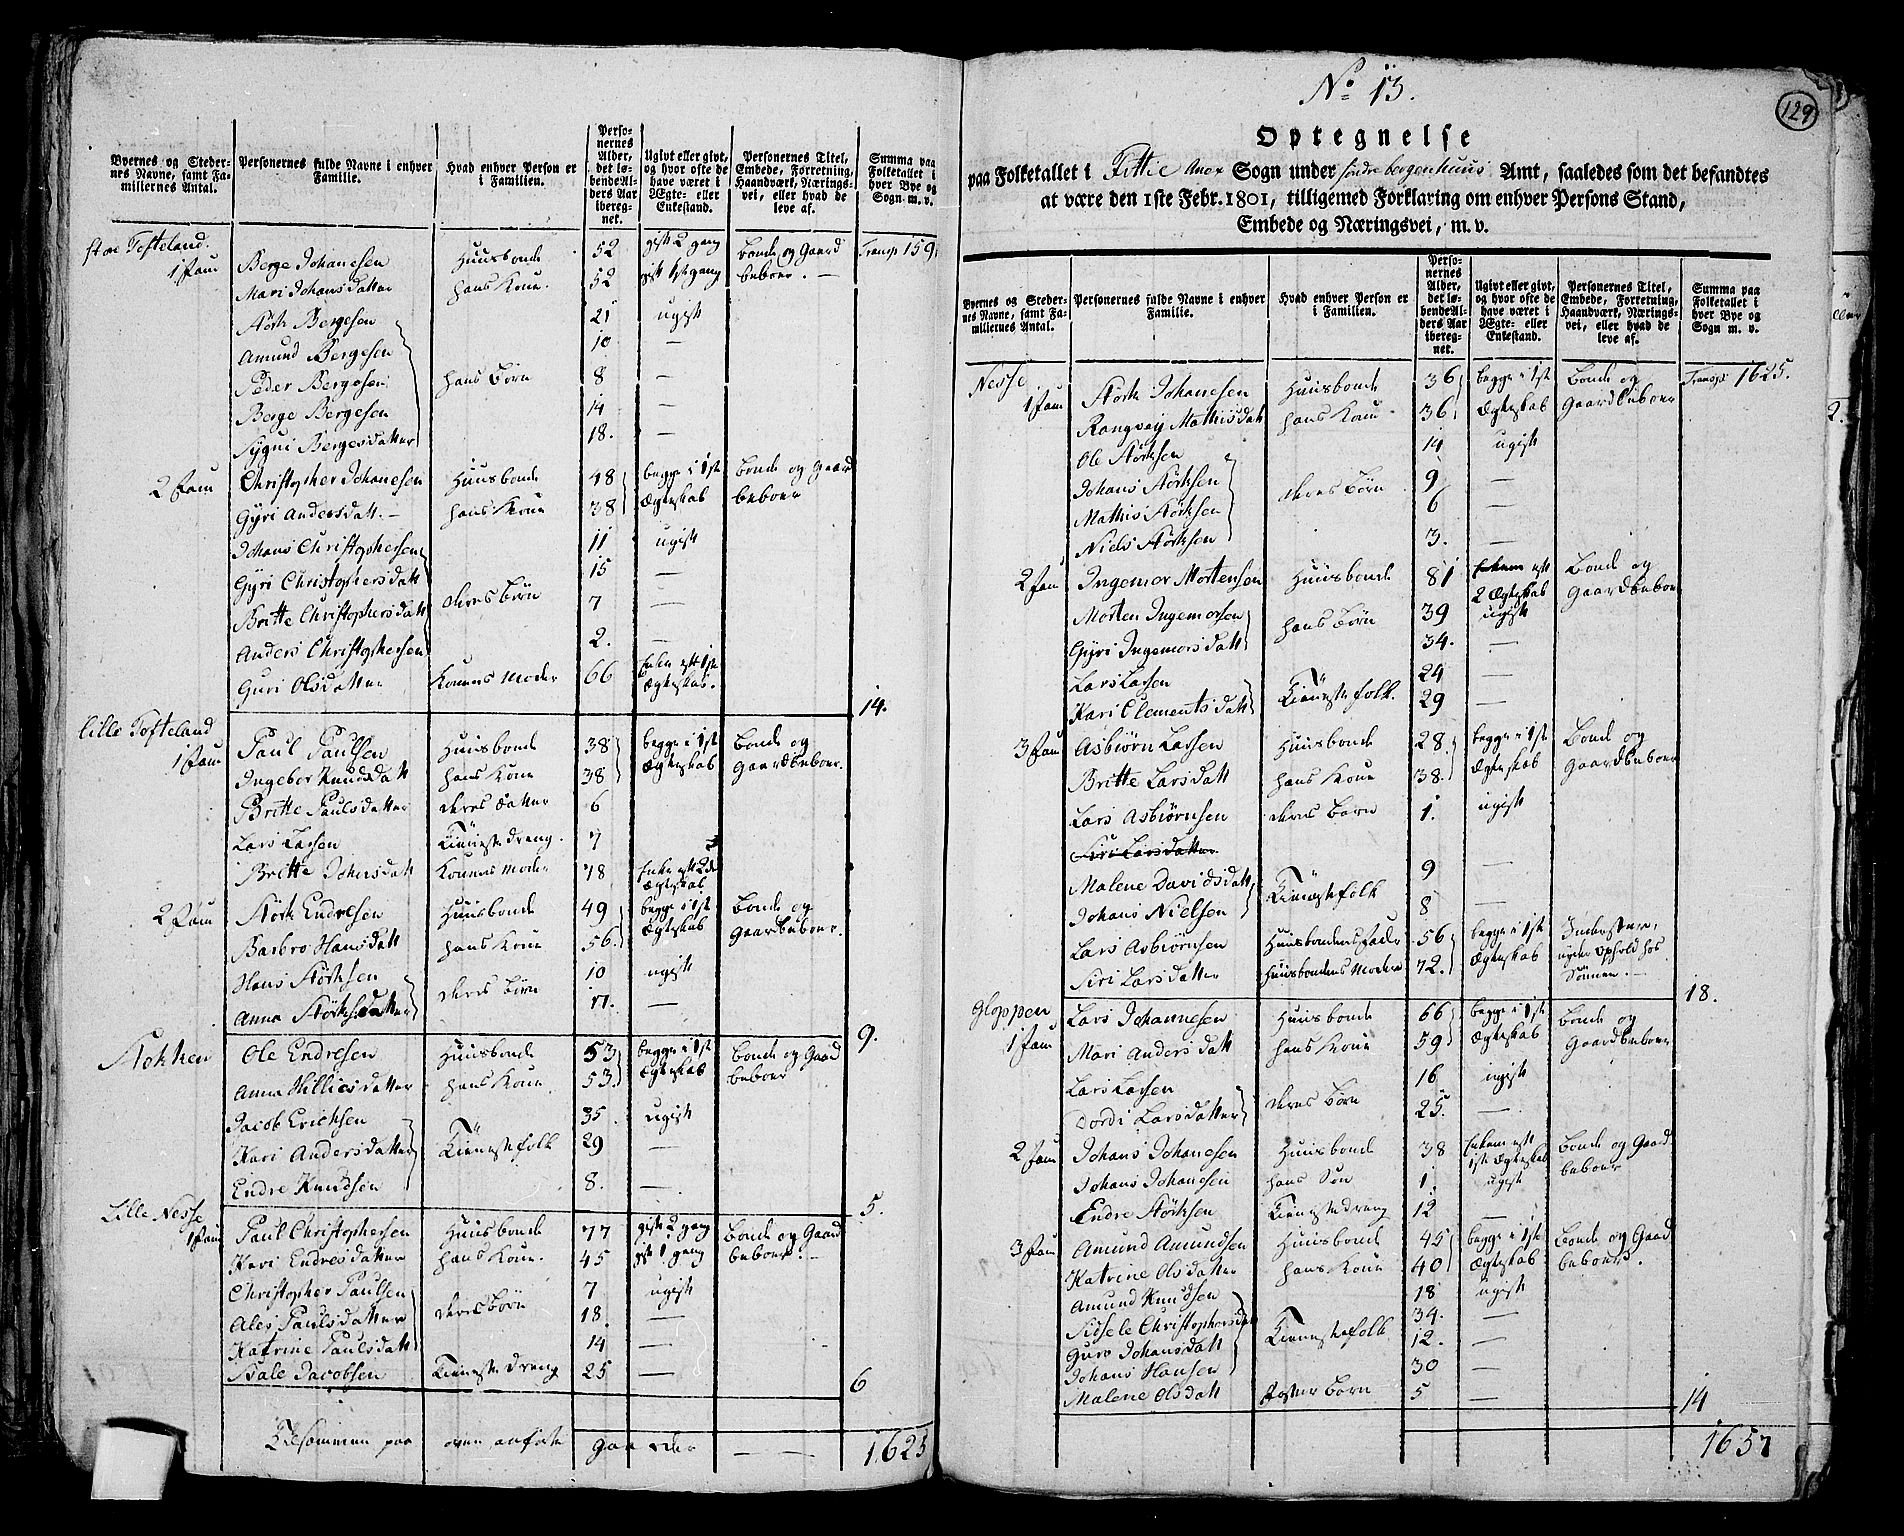 Byernes og Steder-
nes Navne, samt Fa-
miliernes Antal.
Personernes fulde Navne i enhver
Familie.
Hvad enhver Person er
i Familien.
Perso-
nernes
Alder,
det lø-
bende Al-
ders Aar
ibereg-
net.
Ugivt eller givt,
og hvor ofte de
have været i
Ægte- eller
Enkestand.
Personernes Titel,
Embede, Forretning,
Haandværk, Nærings-
vei, eller hvad de
leve af.
Summa paa
Folketallet i
hver Bye og
Sogn m. v.
store Tofteland.
1 Fam Berge Johanesen Huusbonde 52 gift 2 gang Bonde og Gaard Transp 1591
Mari Johansdatter hans Kone 52 gift 1ste gang beboer. —
Størk Bergesen 21 ugift
Amund Bergesen 10 —
Peder Bergesen hans Børn 8 —
Berge Bergesen 14 —
Sygni Bergesdatter 18. —
2 Fam Christopher Johanesen Huusbonde 48 begge i 1st Bonde og Gaard
Gyri Andersdatt. — hans Kone 38 Ægteskab beboer
Johans Christophersen 11 ugift
Gyri Christophersdatt 15 —
Britte Christophersdatt deres børn 7 —
Anders Christophersen 2. —
Guri Olsdatter Konens Moder 66 Enke eft 1st Ægteskab.
14.
lille Tofteland
1 Fam Paul Paulsen Huusbonde 38 begge i 1st Bonde og
Ingebor Knudsdatt hans Kone 38 Ægteskab Gaardbeboer.
Britte Paulsdatter deres datter 6
Lars Larsen Tieneste dreng. 7
Britte Johansdatt Konens Moder 78 Enke eft 2de Ægteskab
2 Fam Størk Endresen Huusbonde 49 begge i 1st Bonde og
Barbro Hansdatt hans Kone 56. Ægteskab Gaardbeboer.
Hans Størksen 10 ugift
Anna Størksdatter deres børn 17. —
9.
Stokken Ole Endresen Huusbonde 53 begge i 1st Bonde og Gaard
Anna Willicsdatter hans Kone 53. Ægteskab beboer
Jacob Ericksen 35. ugift
Kari Andersdatter Tienestefolk 29 —
Endre Knudsen 8. —
5.
Lille Nesse
1 Fam Paul Christophersen Huusbonde 77 gift 2 gang Bonde og Gaard
Kari Endresdatter hans Kone. 45 gft 1 gang beboer. —
Christopher Paulsen 7 ugift
Ales Paulsdatter deres børn 18. —
Katrine Paulsdatt 14 —
Bale Jacobsen Tieneste dreng 25 —
6
Tilsammen paa oven anførte Gaarder — — 1625
129
No 13.
Optegnelse
paa Folketallet i Fittie Anex Sogn under søndre bergenhuus Amt, saaledes som det befandtes
at være den 1ste Febr. 1801, tilligemed Forklaring om enhver Persons Stand,
Embede og Næringsvei, m. v.
Byernes og Steder-
nes Navne, samt Fa-
miliernes Antal.
Personernes fulde Navne i enhver
Familie.
Hvad enhver Person er
i Familien.
Perso-
nernes
Alder,
det lø-
bende Al-
ders Aar
ibereg-
net.
Ugivt eller givt,
og hvor ofte de
have været i
Ægte- eller
Enkestand.
Personernes Titel,
Embede, Forretning,
Haandværk, Nærings-
vei, eller hvad de
leve af.
Summa paa
Folketallet i
hver Bye og
Sogn m. v.
Nesse
1 Fam Størk Johanesen Huusbonde 36 begge i 1st Bonde og Transp 1625.
Rangvey Mathisdatt hans Kone. 36 Ægteskab Gaardbeboer
Ole Størksen 14 ugift
Johans Størksen deres børn 9 —
Mathis Størksen 6 —
Niels Størksen 3. —
2 Fam Ingemor Mortensen Huusbonde 81 Enkem eft 2 Ægteskab Bonde og Gaardbeboer
Morten Ingemorsen hans børn 39 ugift
Gyri Ingemorsdatt 34. —
Lars Larsen Tieneste folk. 24 —
Kari Clementsdatt 29 —
3 Fam Asbiørn Larsen Huusbonde 28. begge i 1st Bonde og
Britte Larsdatt hans Kone 38. Ægteskab Gaardbeboer
Lars Asbiørnsen deres barn 1. ugift
Siri Larsdatter
Malene Davidsdatt Tienestefolk 9 —
Johans Nielsen 8 —
Lars Asbiørnsen Huusbondens Fader 56 begge i 1st Inderster,
Siri Larsdatter Huusbondens Moder 72. Ægteskab nyder Ophold hos Sønnen. —
18.
Gloppen Lars Johannesen Huusbonde 66 begge i 1st Bonde og
1 Fam Mari Andersdatt hans Kone 59 Ægteskab Gaardbeboer
Lars Larsen deres børn 16 ugift
Dordi Larsdatter 25. —
2 Fam Johans Johanesen Huusbonde 38 Enkem eft 1st Ægteskab Bonde og Gaard beboer
Johans Johanesen hans Søn 1. ugift
Endre Størksen Tieneste dreng 12 —
3 Fam Amund Amundsen Huusbonde 45 begge i 1st Bonde og Gaard
Katrine Olsdatter hans Kone 40 Ægteskab beboer.
Amund Knudsen 18 ugift
Sidsele Christophersdatt Tienestefolk 34. —
Guro Johansdatt 12. —
Johans Hansen 30 —
Malene Olsdatt Foster barn 5 —
14
1657